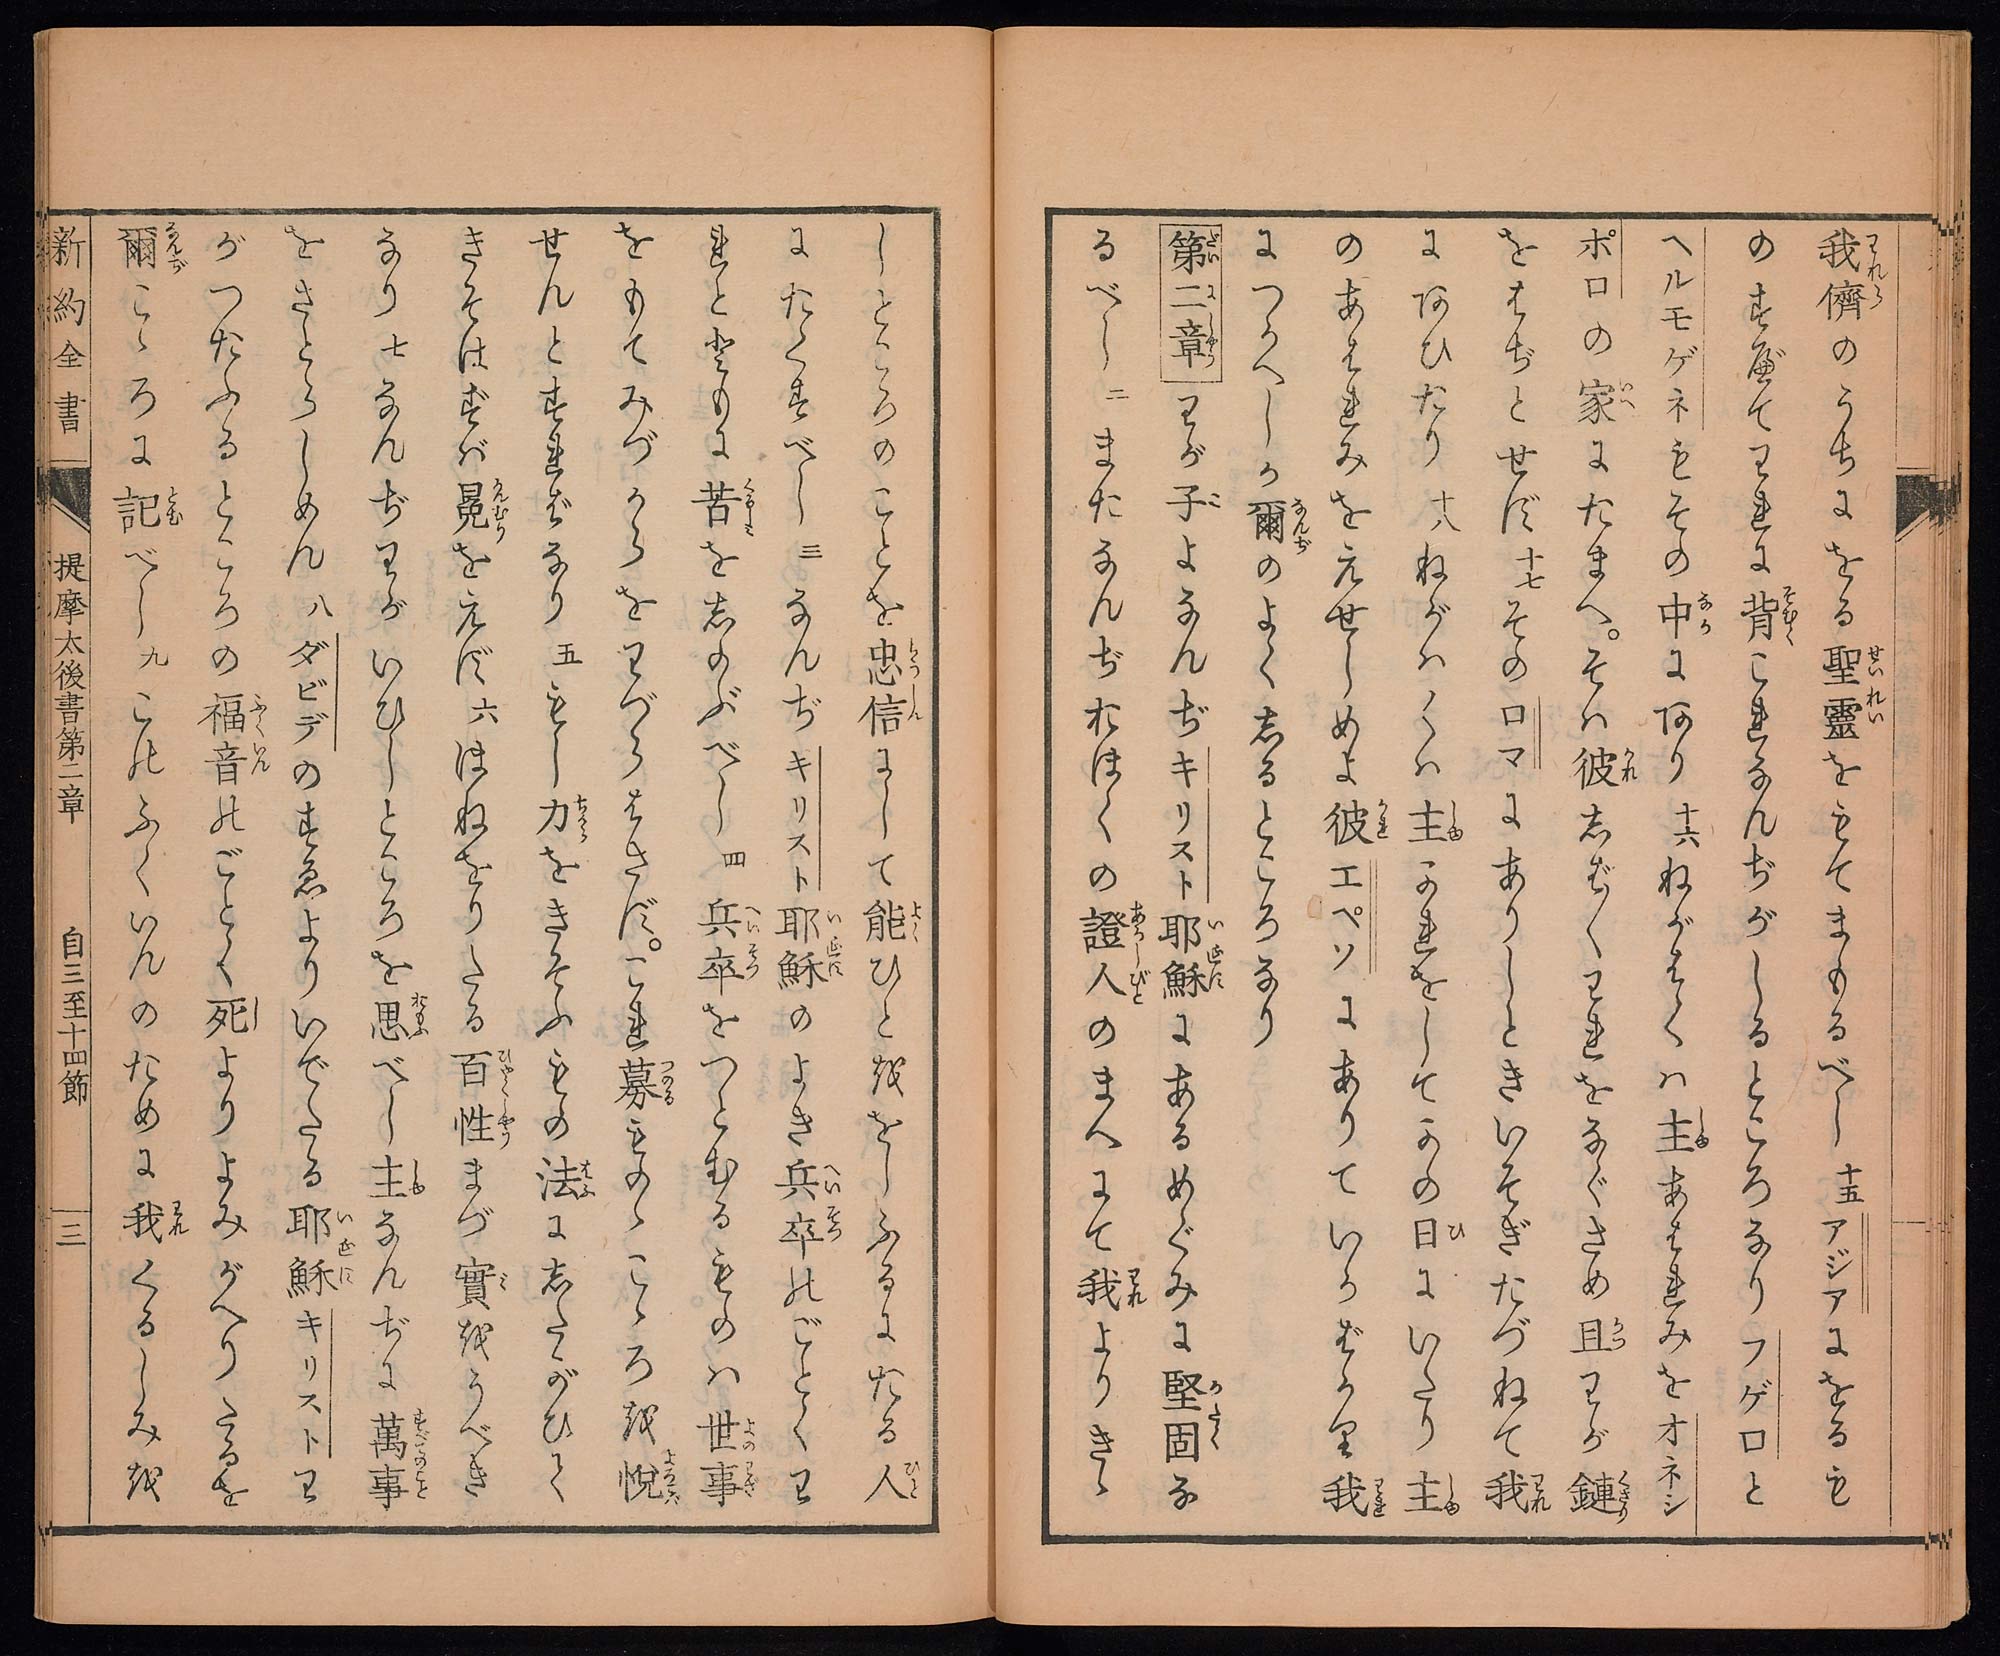 我儕のうちにをる聖靈をもてまもるべし 十五 アジアにをるも
のすべてわれに背これなんぢがしるところなりフゲロと
ヘルモゲネもその中にあり 十六 ねがはくハ主あはれみをオネシ
ポロの家にたまへ。そハ彼しばしばわれをなぐさめ且わが鏈
をはぢとせず 十七 そのロマにありしときいそぎたづねて我
にあひたり 十八 ねがハくハ主かれをしてかの日にいたり主
のあはれみをえせしめよ彼エペソにありていかばかり我
につかへしか爾のよくしるところなり
第二章 わが子よなんぢキリスト耶穌にあるめぐみに堅固な
るべし 二 またなんぢおほくの證人のまへにて我よりきゝ
しところのことを忠信にして能ひとををしふるにたる人
にたくすべし 三 なんぢキリスト耶穌のよき兵卒のごとくわ
れとともに苦をしのぶべし 四 兵卒をつとむるものハ世事
をもてみづからをわづらはさず。これ募ものゝこゝろを悅
せんとすればなり 五 もし力をきそふもの法にしたがひて
きそはずバ冕をえず 六 ほねをりたる百性まづ實をうべき
なり 七 なんぢわがいひしところを思べし主なんぢに萬事
をさとらしめん 八 ダビデのすゑよりいでたる耶穌キリストわ
がつたふるところの福音のごとく死よりよみがへりたるを
爾こゝろに記べし 九 このふくいんのために我くるしみを
新約全書 提摩太後書第二章 自三至十四節 三